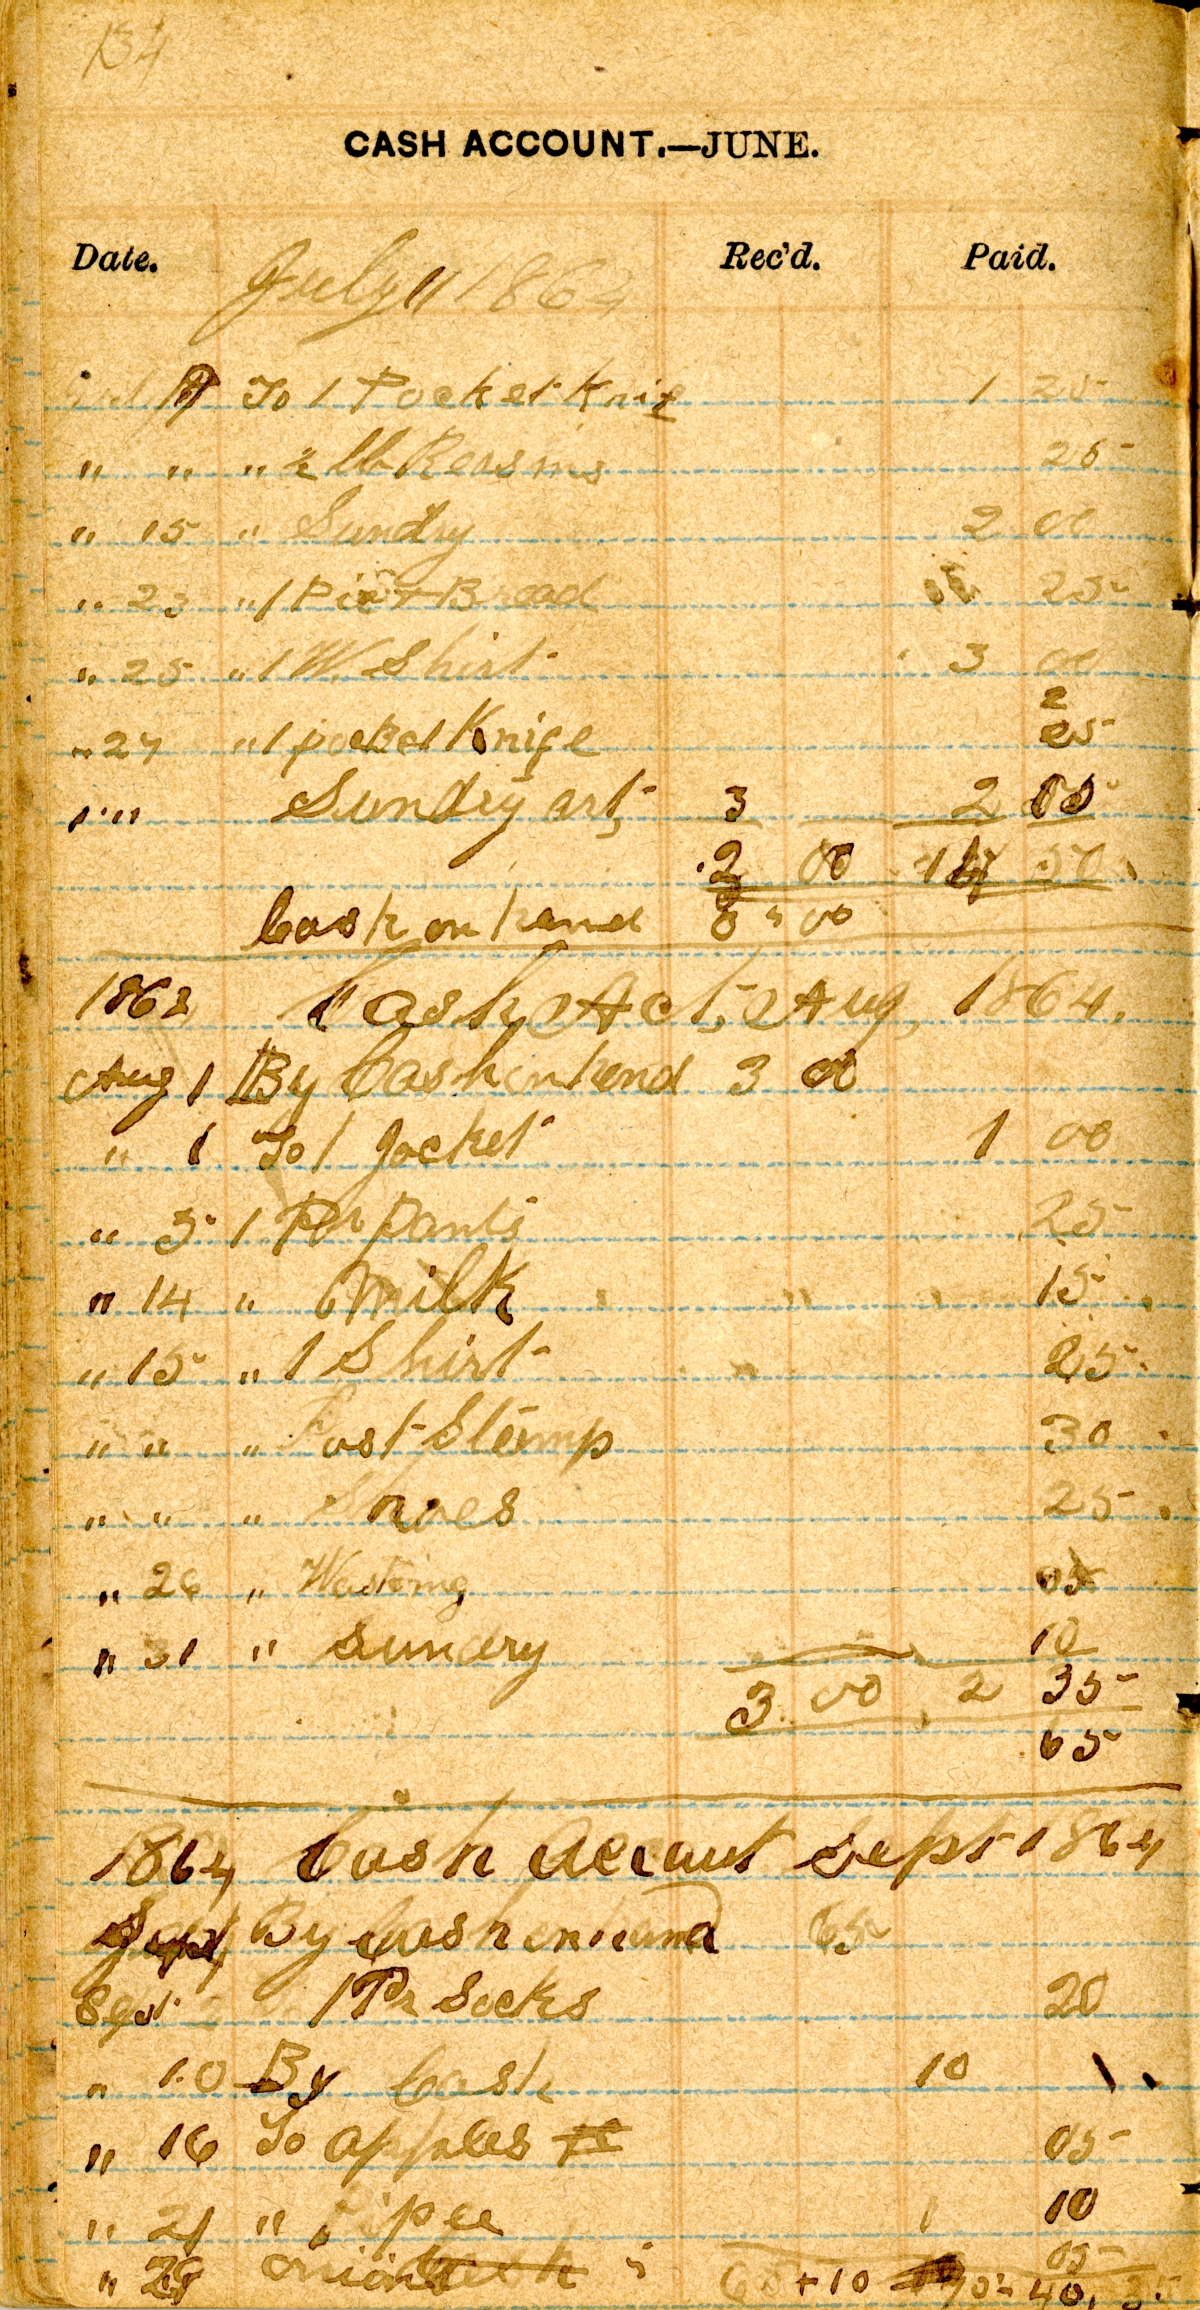 134
CASH ACCOUNT.—JUNE.
Date. Rec'd. Paid.
July 11 1864
To 1 Pocket Knife 1 25
" " " lb Reasins 25
" 15 " Sundry 2 00
" 23 " 1 Pie + Bread 25
" 25 " 1 W. Shirt 3 00
2
" 27 " 1 pocket Knife 25
" " Sundry art, 3 2 00
2 00 50
Cash on hand 00
1863 Cash Act, Aug, 1864.
Aug 1 By Cash on hend 3 00
" 1 To 1 Jacket 1 00
" 5 1 Pr pants 25
" 14 " Milk 15
" 15 " 1 Shirt 25
" " " Post Stamp 30
" " " Shoes 25
" 26 " Washing 05
" 31 " Sundry 10
3 00 2 35
65
1864 Cash Account Sept 1864
Sept By Cash on hand 65
Sept 1 Pr Socks 20
" 10 By Cash 10
" 16 To apples 05
" 21 " Pipe 10
" 28 onion 05
+ 10 40,